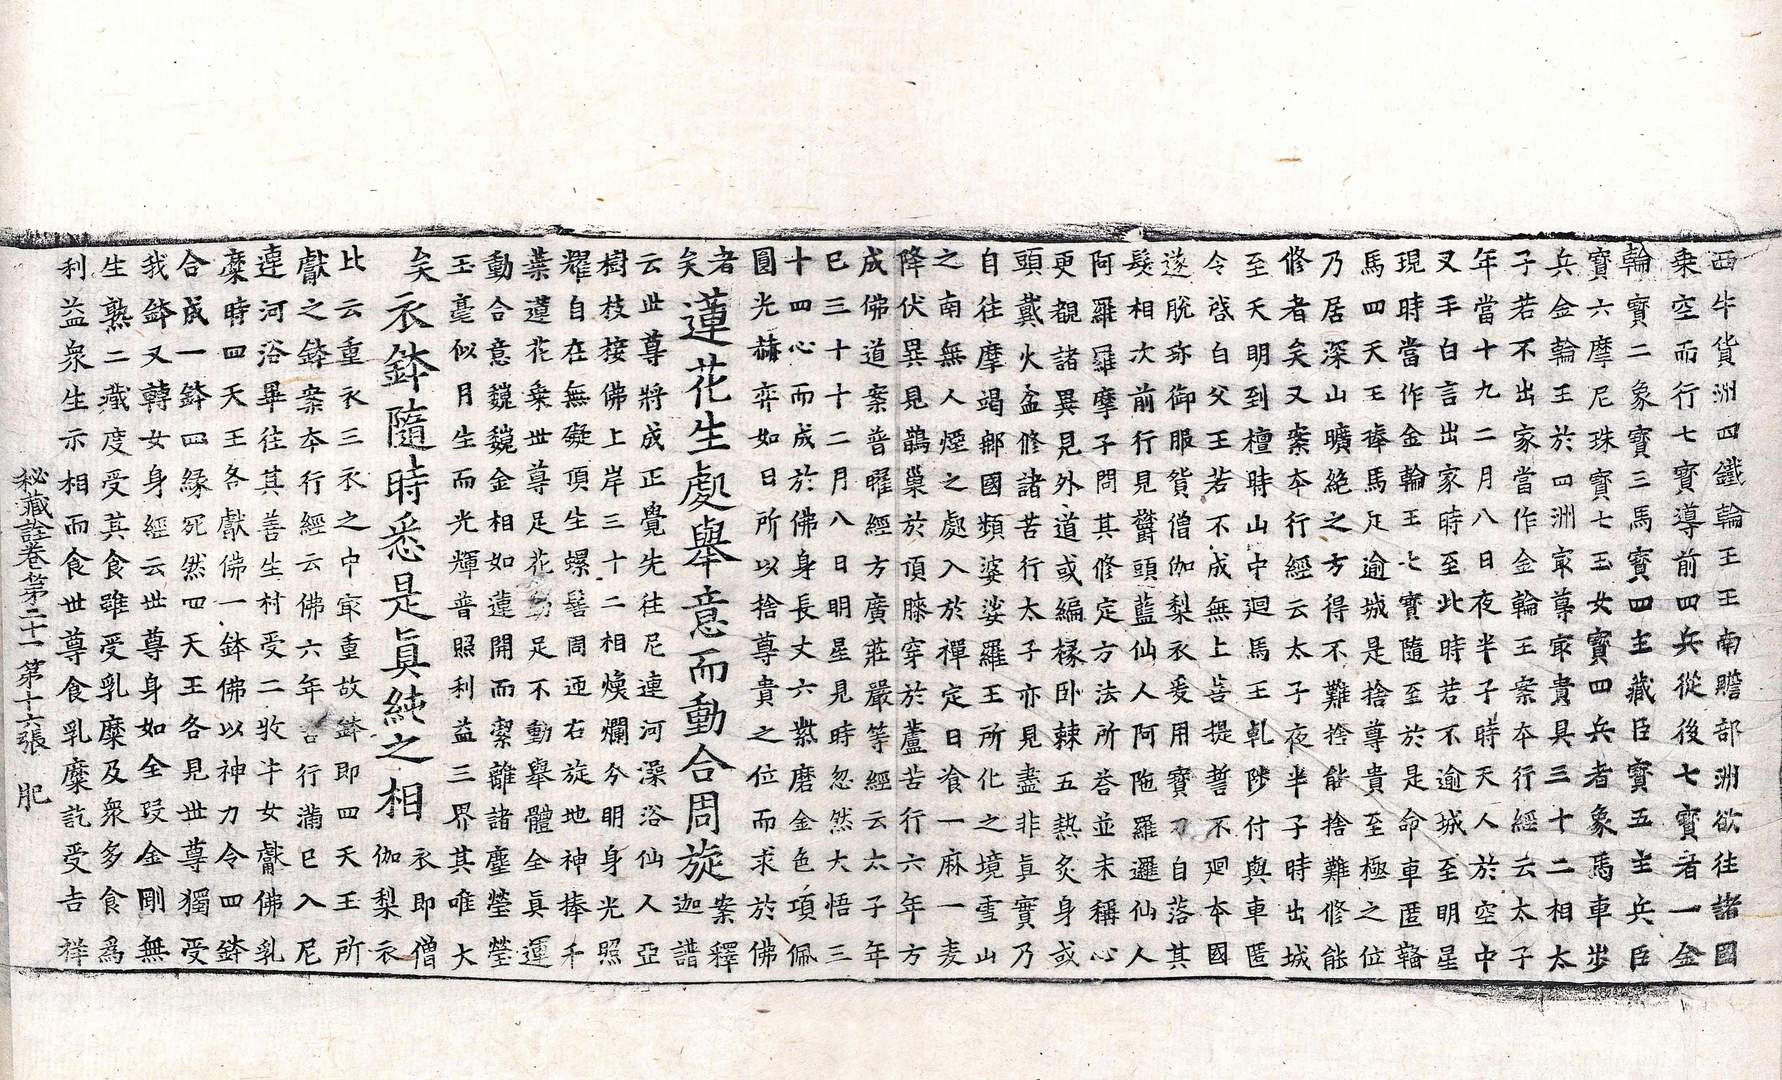 西牛貨洲四鐵輪王王南贍部洲欲往諸國
乗空而行七寳導前四兵從後七寳者一金
輪寳二象寳三馬寳四主藏臣寳五主兵臣
寳六摩尼珠寳七玉女寳四兵者象馬車步
兵金輪王於四洲㝡尊㝡貴具三十二相太
子若不出家當作金輪王案夲行經云太子
年當十九二月八日夜半子時天人於空中
叉手白言出家時至此時若不逾城至明星
現時當作金輪王七寳隨至於是命車匿鞴
馬四天王捧馬足逾城是捨尊貴至極之位
乃居深山曠絶之方得不難捨能捨難修能
修者矣又案夲行經云太子夜半子時出城
至天明到檀時山中迴馬王軋陟付與車匿
令啓白父王若不成無上菩提誓不迴夲國
遂脫珎御服貨僧伽梨衣爰用寳刀自落其
髮相次前行見欝頭藍仙人阿陁羅邏仙人
阿羅羅摩子問其修定方法所荅並未稱心
更覩諸異見外道或編椽卧棘五熱炙身或
頭戴火盆修諸苦行太子亦見盡非真實乃
自往摩竭鄉國頻婆娑羅王所化之境雪山
之南無人煙之處入於禪定日飡一麻一麦
降伏異見鵲巢於頂膝穿於蘆苦行六年方
成佛道案普曜經方廣莊嚴等經云太子年
已三十十二月八日明星見時忽然大悟三
十四心而成於佛身長丈六紫磨金色項佩
圓光赫弈如日所以捨尊貴之位而求於佛
者
矣
蓮花生處舉意而動合周旋
案釋
迦譜
云世尊將成正覺先往尼連河澡浴仙人亞
樹枝接佛上岸三十二相煥爛分明身光照
耀自在無礙頂生螺髻周迊右旋地神捧千
葉蓮花乗世尊足花動足不動舉體全真運
動合意巍巍金相如蓮開而潔離諸塵瑩瑩
玉毫似月生而光輝普照利益三界其唯大
矣
衣鉢隨時悉是眞純之相
衣即僧
伽梨衣
比云重衣三衣之中㝡重故鉢即四天王所
獻之鉢案夲行經云佛六年苦行滿已入尼
連河浴畢往其善生村受二牧牛女獻佛乳
糜時四天王各獻佛一鉢佛以神力令四鉢
合成一鉢四緣宛然四天王各見世尊獨受
我鉢又轉女身經云世尊身如全叚金剛無
生熟二藏度受其食雖受乳糜及衆多食爲
利益衆生示相而食世尊食乳糜訖受吉祥
秘藏詮卷第二十一 第十六張 肥